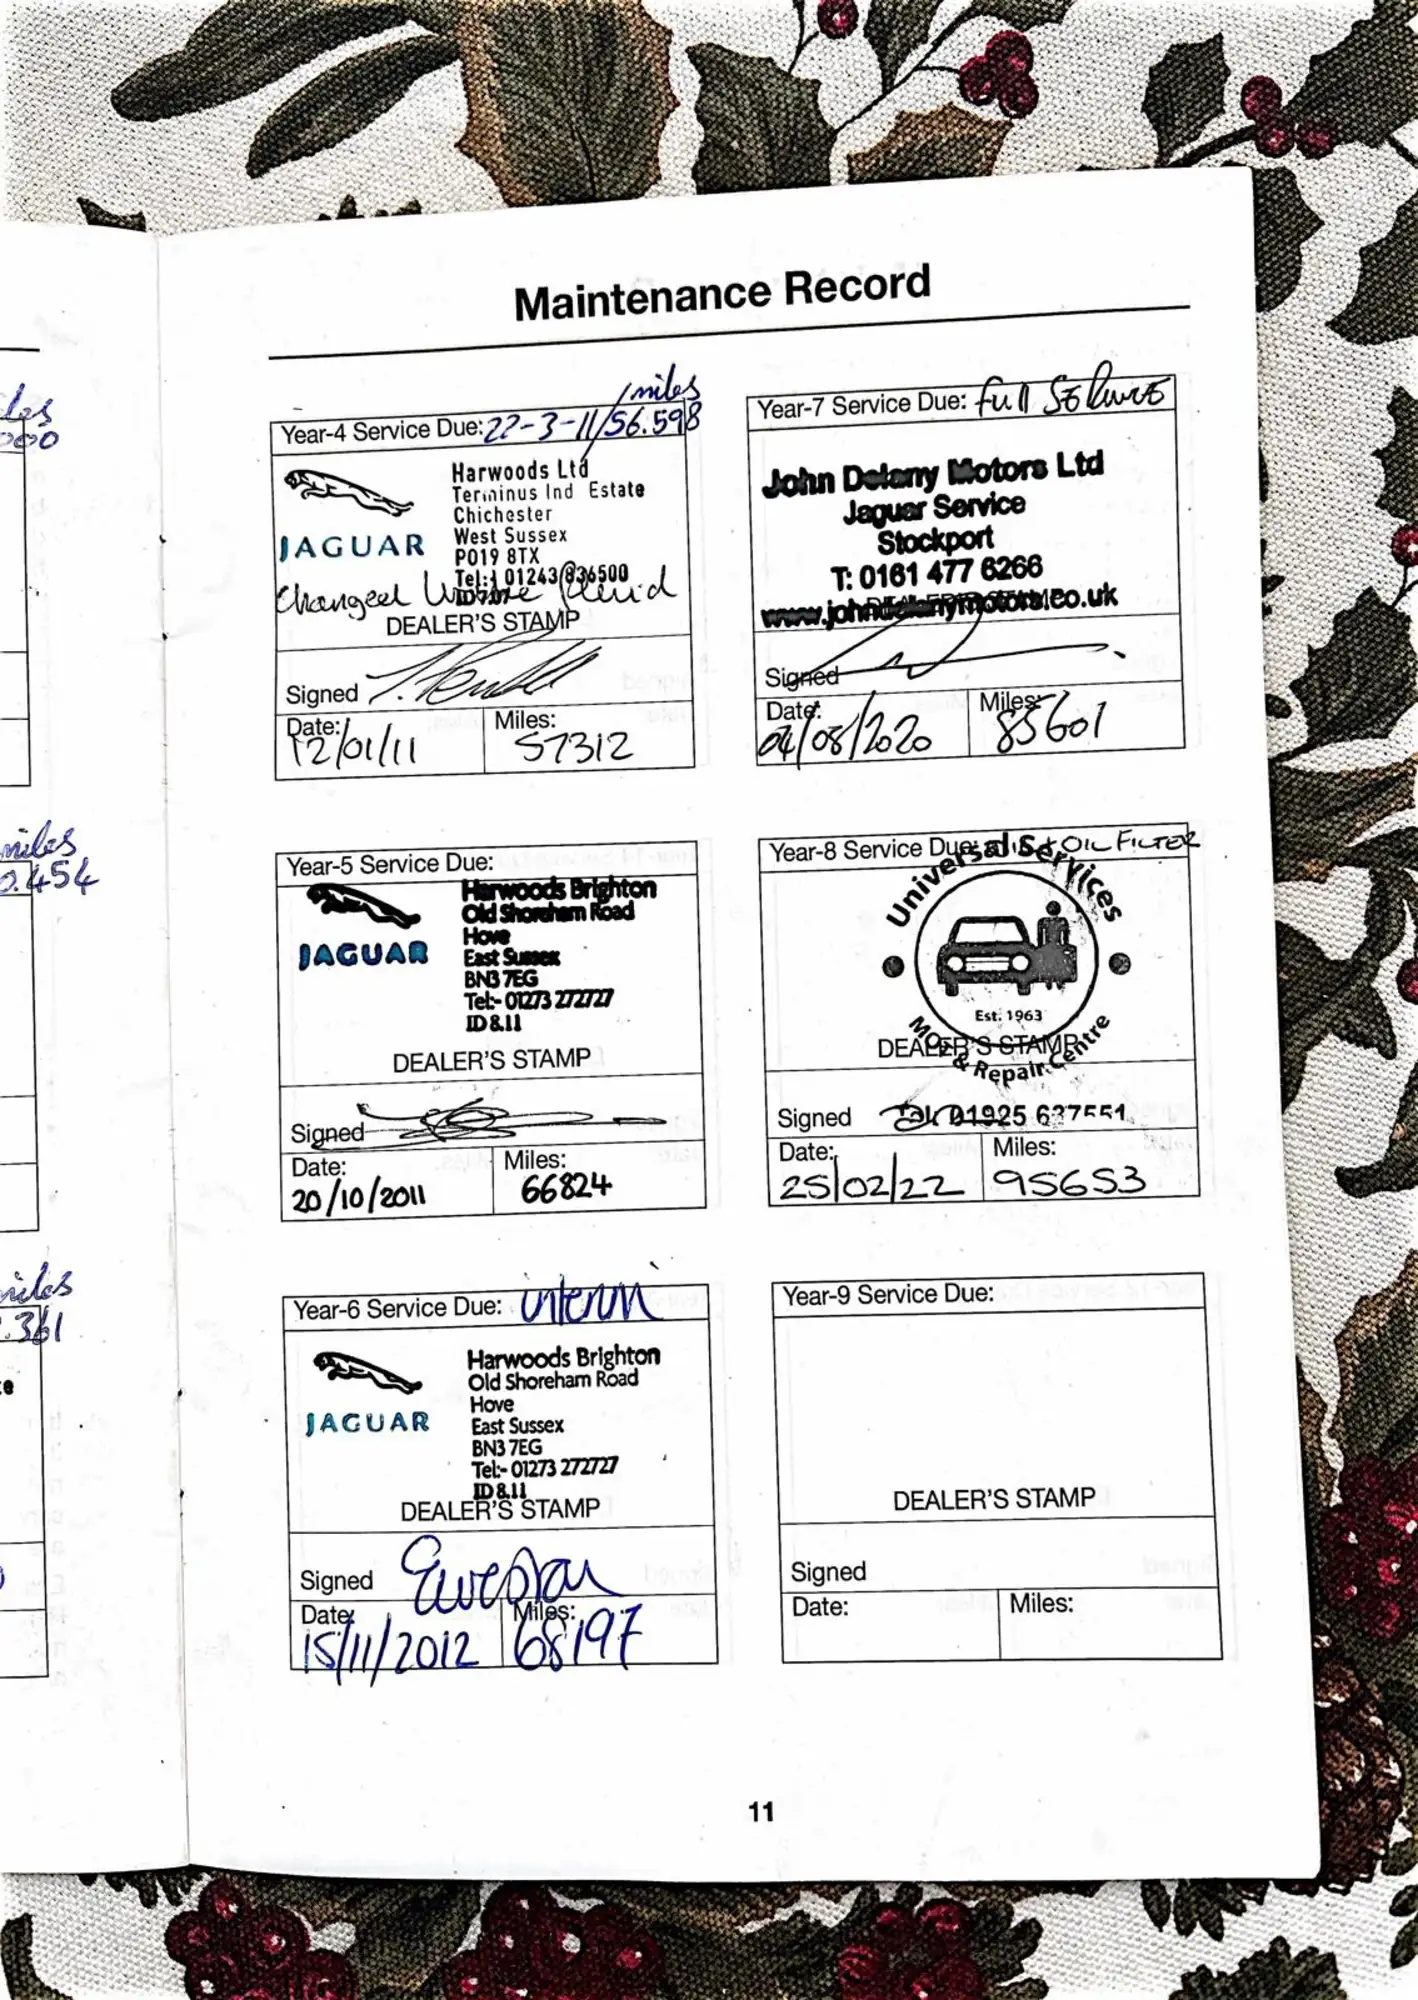 les
000
miles
0.454
miles
.361
Maintenance Record
miles
Year-4 Service Due: 22-3-11/56.598
JAGUAR
Harwoods Ltd
Terminus Ind Estate
Chichester
West Sussex
PO19 8TX
Tel: 01243 836500
Changed fluid
DEALER'S STAMP
Signed
Date: 12/01/11
Miles: 57312
Year-5 Service Due:
JAGUAR
Harwoods Brighton
Old Shoreham Road
Hove
East Sussex
BN3 7EG
Tel:- 01273 272727
ID 8.11
DEALER'S STAMP
Signed
Date: 20/10/2011
Miles: 66824
Year-6 Service Due: interim
JAGUAR
Harwoods Brighton
Old Shoreham Road
Hove
East Sussex
BN3 7EG
Tel:- 01273 272727
ID 8.11
DEALER'S STAMP
Signed
Date: 15/11/2012
Miles: 68197
Year-7 Service Due: Full Service
John Delany Motors Ltd
Jaguar Service
Stockport
T: 0161 477 6266
www.johndelanymotors.co.uk
DEALER'S STAMP
Signed
Date: 04/08/2020
Miles: 85601
Year-8 Service Due: OIL + OIL FILTER
Universal Services
Est. 1963
MOT & Repair Centre
DEALER'S STAMP
Signed
Tel: 01925 637551
Date: 25/02/22
Miles: 95653
Year-9 Service Due:
DEALER'S STAMP
Signed
Date:
Miles:
11